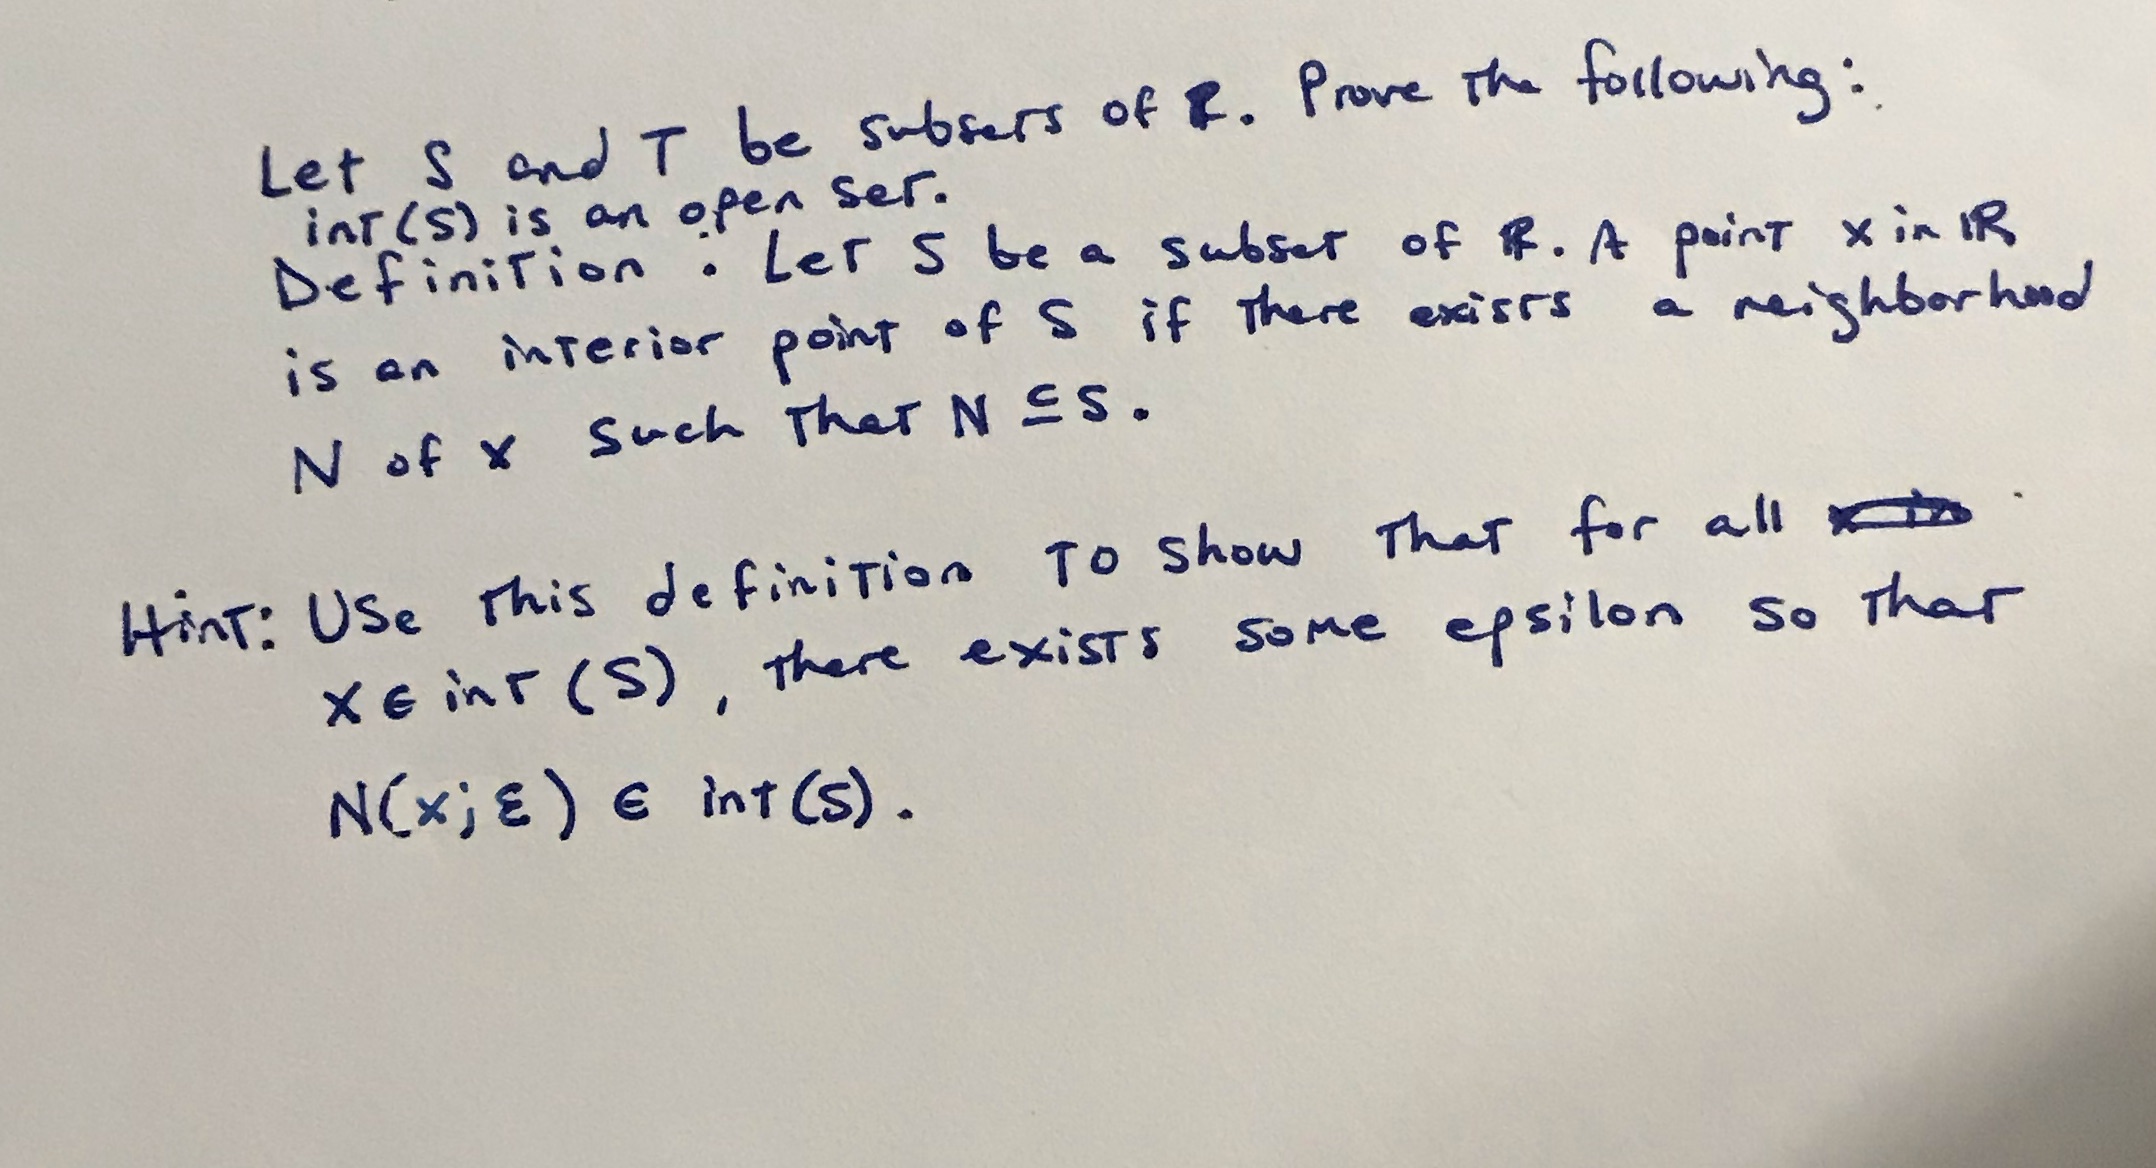 Let S and T be subsets of ℝ. Prove the following:
int(S) is an open set.
Definition: Let S be a subset of ℝ. A point x in ℝ
is an interior point of S if there exists a neighborhood
N of x such that N ⊆ S.
Hint: Use this definition to show that for all
x ∈ int(S), there exists some epsilon so that
N(x; ε) ∈ int(S).